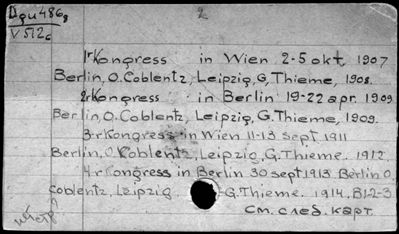 Agu486g
2
V512c
1rKongress in Wien 2-5 okt. 1907
Berlin, O. Coblentz, Leipzig, G. Thieme, 1908.
2rKongress in Berlin 19-22 apr. 1909
Berlin, O. Coblentz, Leipzig, G. Thieme, 1909.
3-rKongress in Wien 11-13 sept. 1911
Berlin, O. Koblentz, Leipzig, G. Thieme. 1912.
4-rKongress in Berlin 30 sept 1913 Berlin O.
Coblentz, Leipzig G. Thieme. 1914. B1-2-3
См. след. карт.